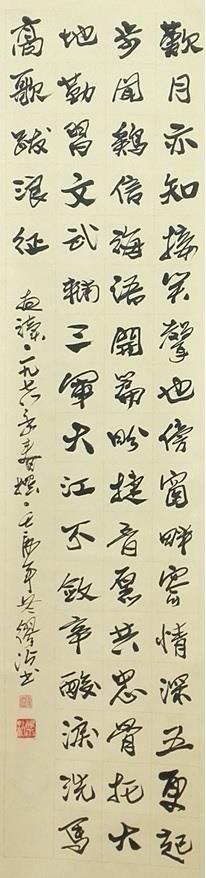 歡月亦知接笑聲也傍窗畔寄情深五更起
步聞鷄信誨語開篇盼捷音愿共忠骨托大
地勤習文武輔三軍大江不斂辛酸淚洗馬
高歌跋浪征
夜讀·一九七六年春撰·壬辰年書